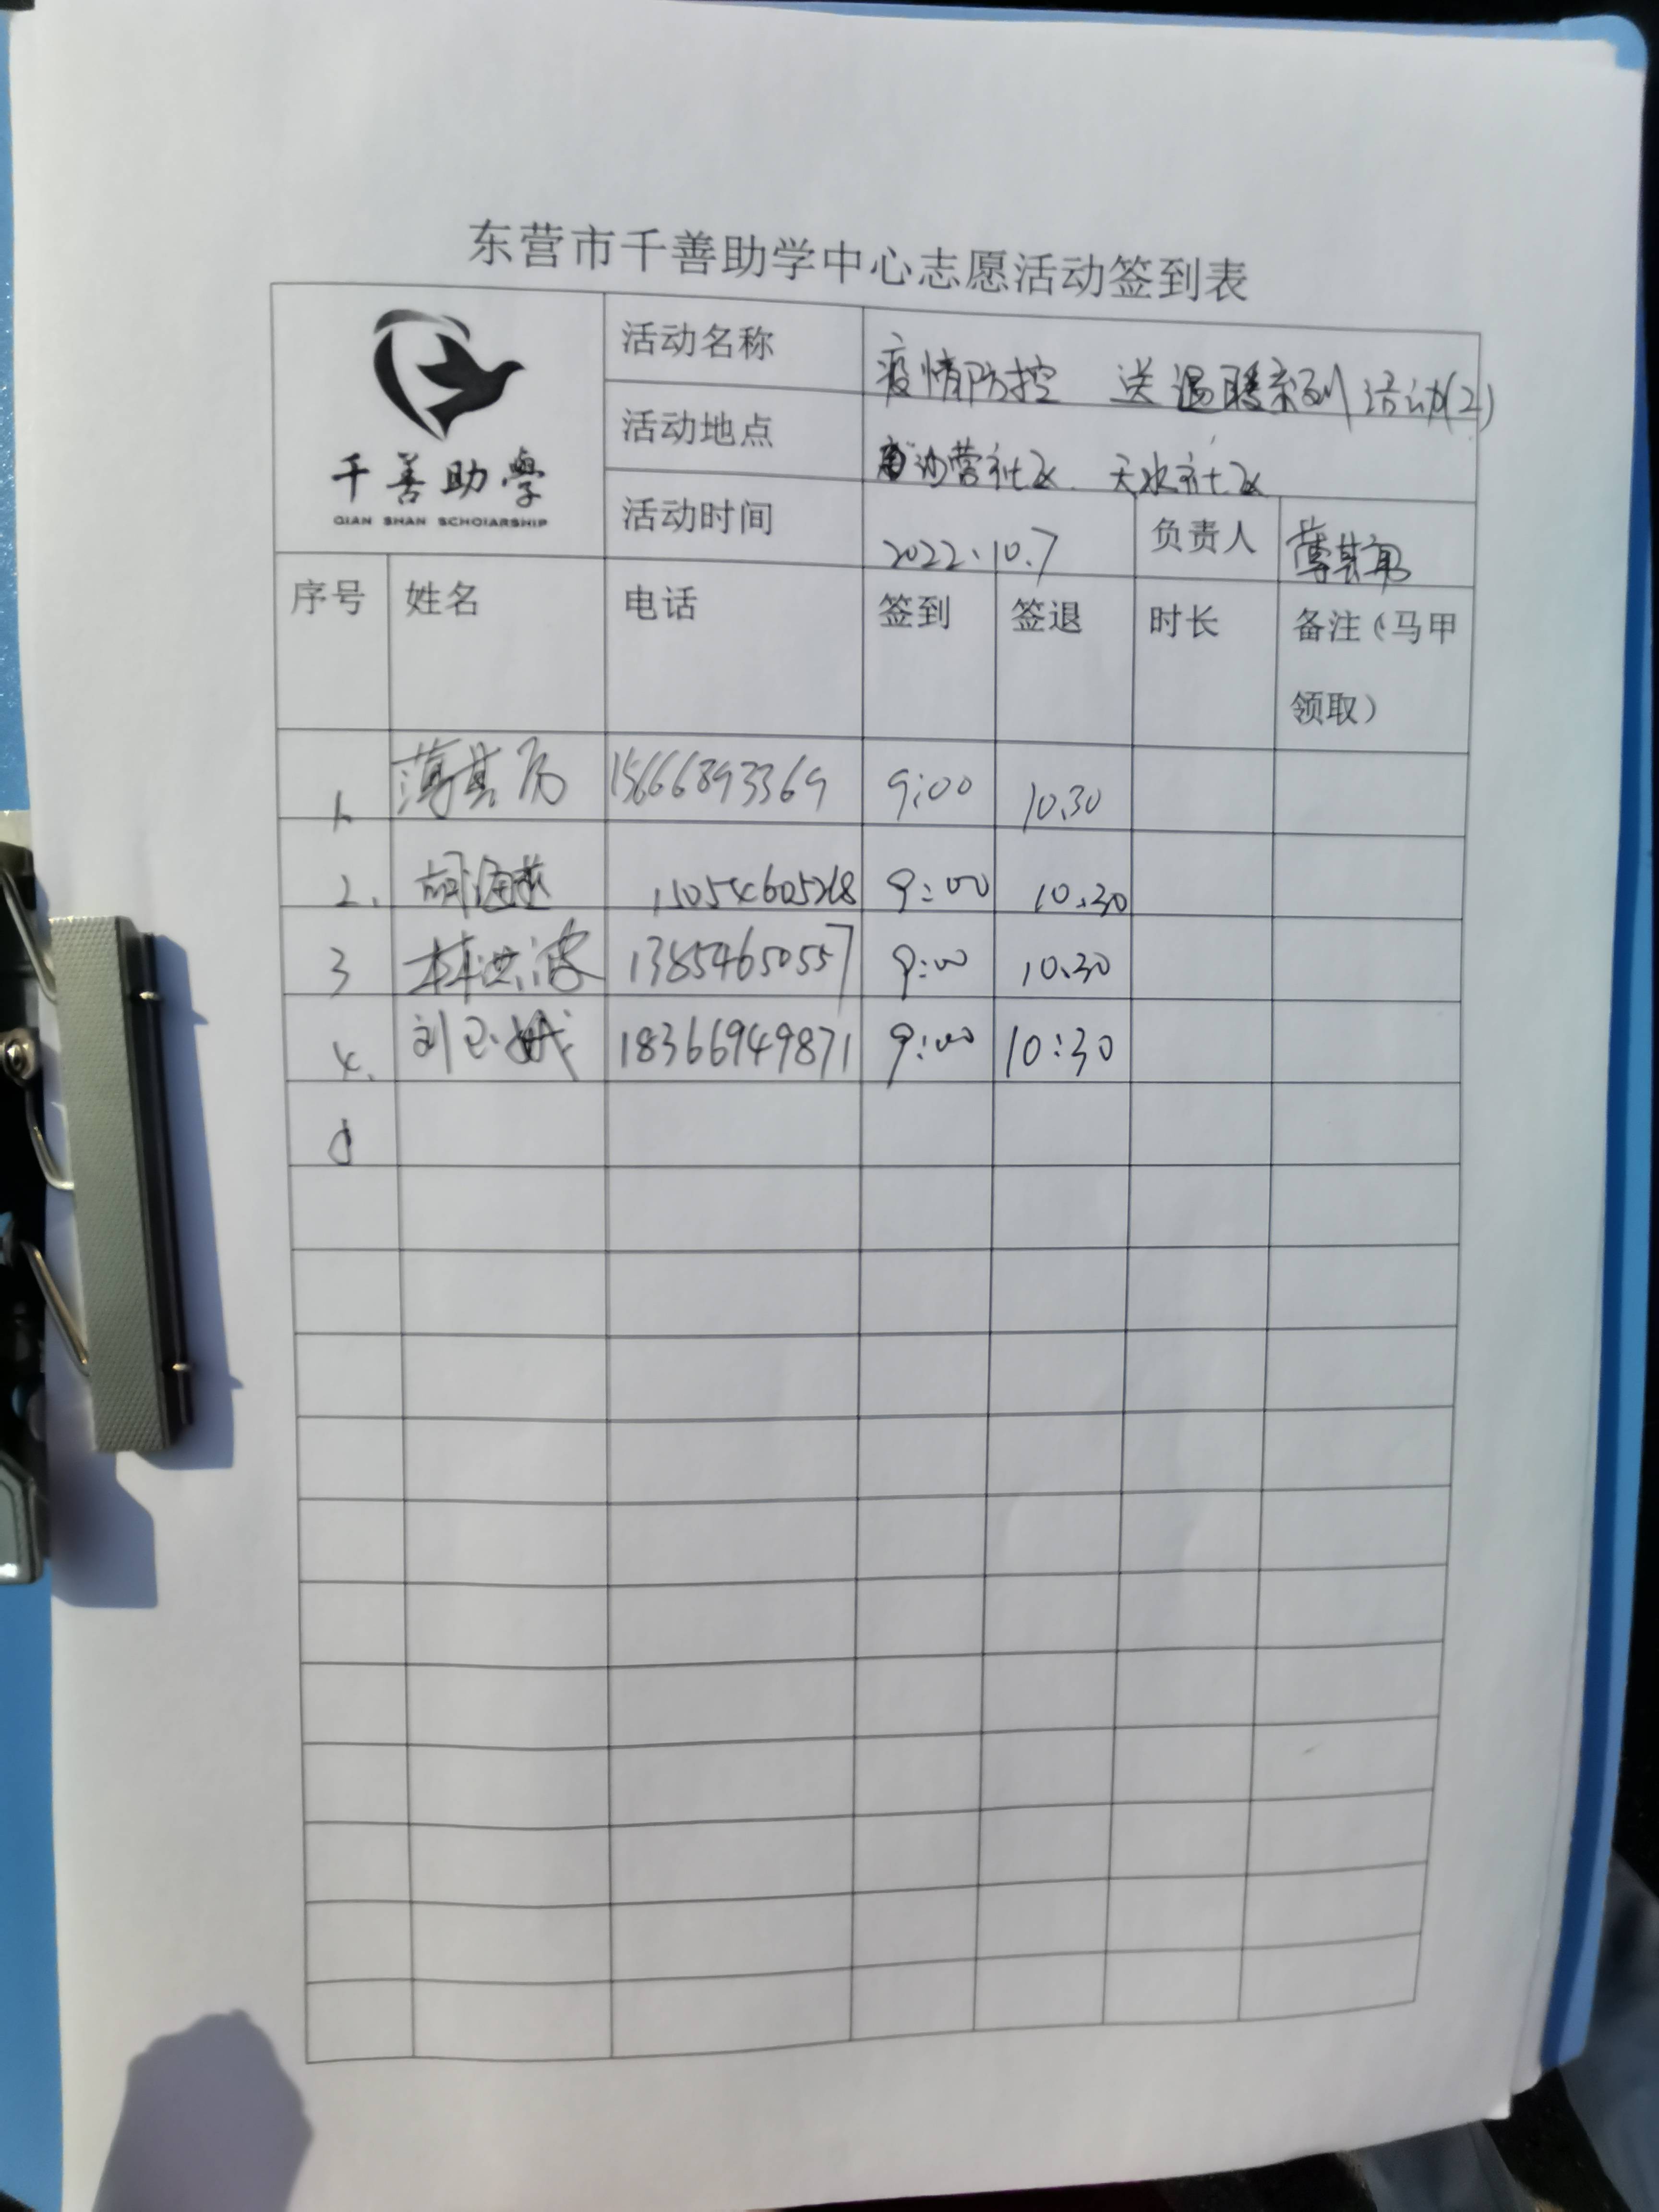 东营市千善助学中心志愿活动签到表
千善助學
QIAN SHAN SCHOIARSHIP
活动名称 疫情防控 送温暖系列活动(2)
活动地点 沙营社区、天水社区
活动时间 2022.10.7 负责人 薄其
序号 姓名 电话 签到 签退 时长 备注（马甲
领取）
1. 薄其 15666893369 9:00 10.30
2. 胡海燕 9:00 10.30
3 林洪波 13854650557 9:00 10.30
4. 刘玉娥 18366949871 9:00 10:30